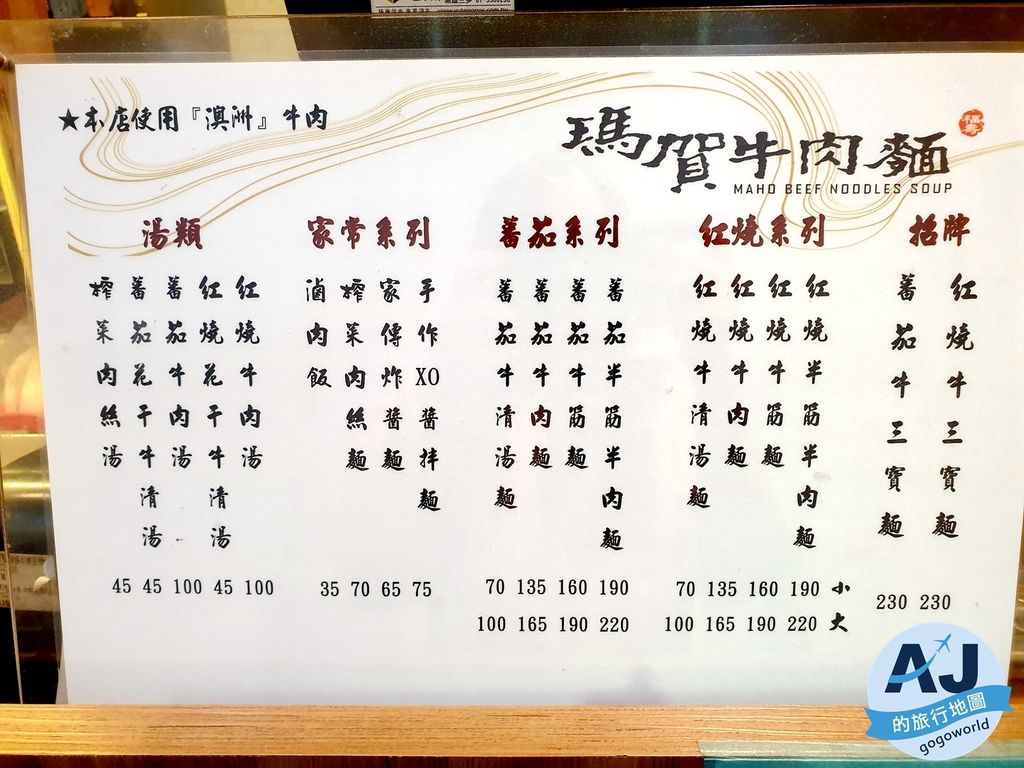 ★本店使用『澳洲』牛肉
瑪賀牛肉麵
MAHO BEEF NOODLES SOUP
招牌
紅燒牛三寶麵
蕃茄牛三寶麵
230 230
紅燒系列
紅燒半筋半肉麵
紅燒牛筋麵
紅燒牛肉麵
紅燒牛清湯麵
70 135 160 190 小
100 165 190 220 大
蕃茄系列
蕃茄半筋半肉麵
蕃茄牛筋麵
蕃茄牛肉麵
蕃茄牛清湯麵
70 135 160 190
100 165 190 220
家常系列
手作XO醬拌麵
家傳炸醬麵
榨菜肉絲麵
滷肉飯
35 70 65 75
湯類
紅燒牛肉湯
紅燒花干牛清湯
蕃茄牛肉湯
蕃茄花干牛清湯
榨菜肉絲湯
45 45 100 45 100
AJ
的旅行地圖
gogoworld